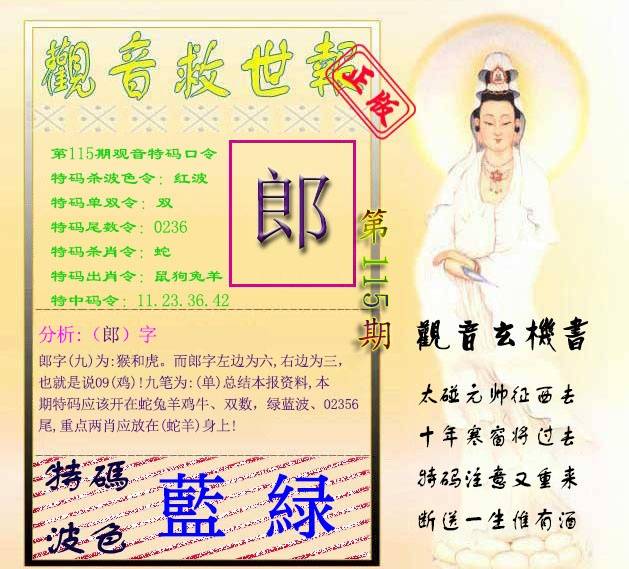 觀音救世報
正版
第115期观音特码口令
特码杀波色令：红波
特码单双令：双
特码尾数令：0236
特码杀肖令：蛇
特码出肖令：鼠狗兔羊
特中码令：11.23.36.42
郎
第115期
分析:（郎）字
郎字(九)为:猴和虎。而郎字左边为六,右边为三,
也就是说09(鸡)!九笔为:(单)总结本报资料,本
期特码应该开在蛇兔羊鸡牛、双数，绿蓝波、02356
尾,重点两肖应放在(蛇羊)身上!
特碼
波色
藍 緑
觀音玄機書
太碰元帅征西去
十年寒窗将过去
特码注意又重来
断送一生惟有酒